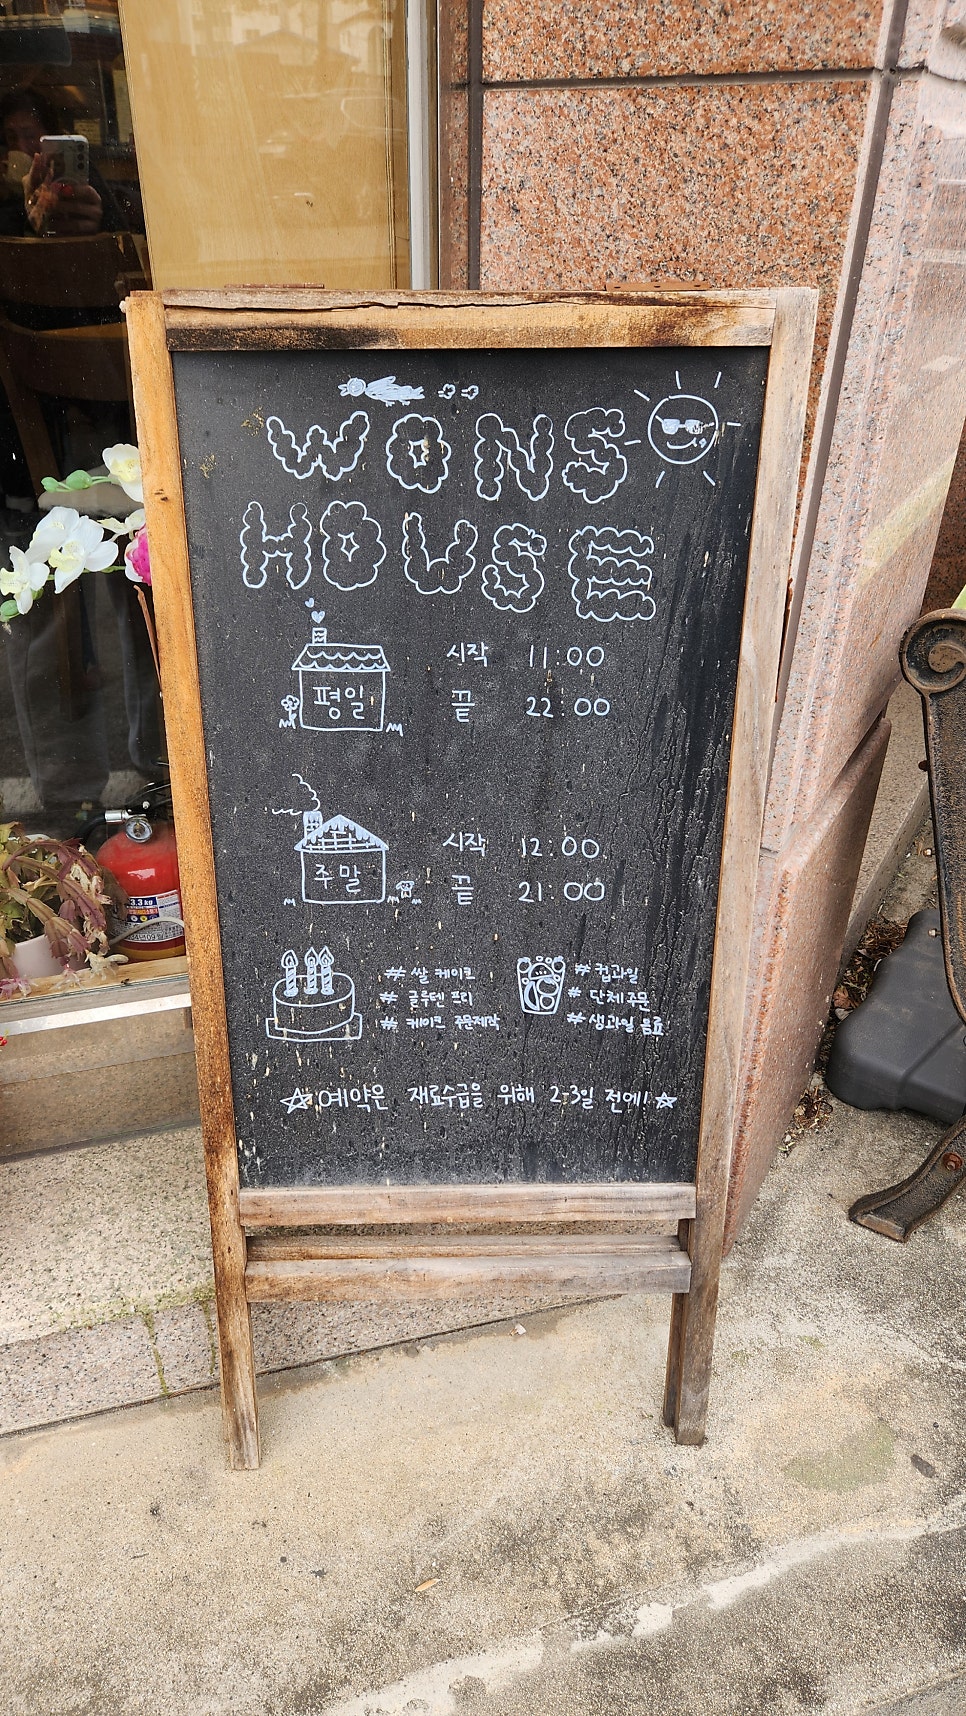 WONS
HOUSE
평일
시작 11:00
끝 22:00
주말
시작 12:00
끝 21:00
# 쌀 케이크
# 글루텐 프리
# 케이크 주문제작
# 컵과일
# 단체주문
# 생과일 음료
☆예약은 재료수급을 위해 2-3일 전에!☆
3.3 kg